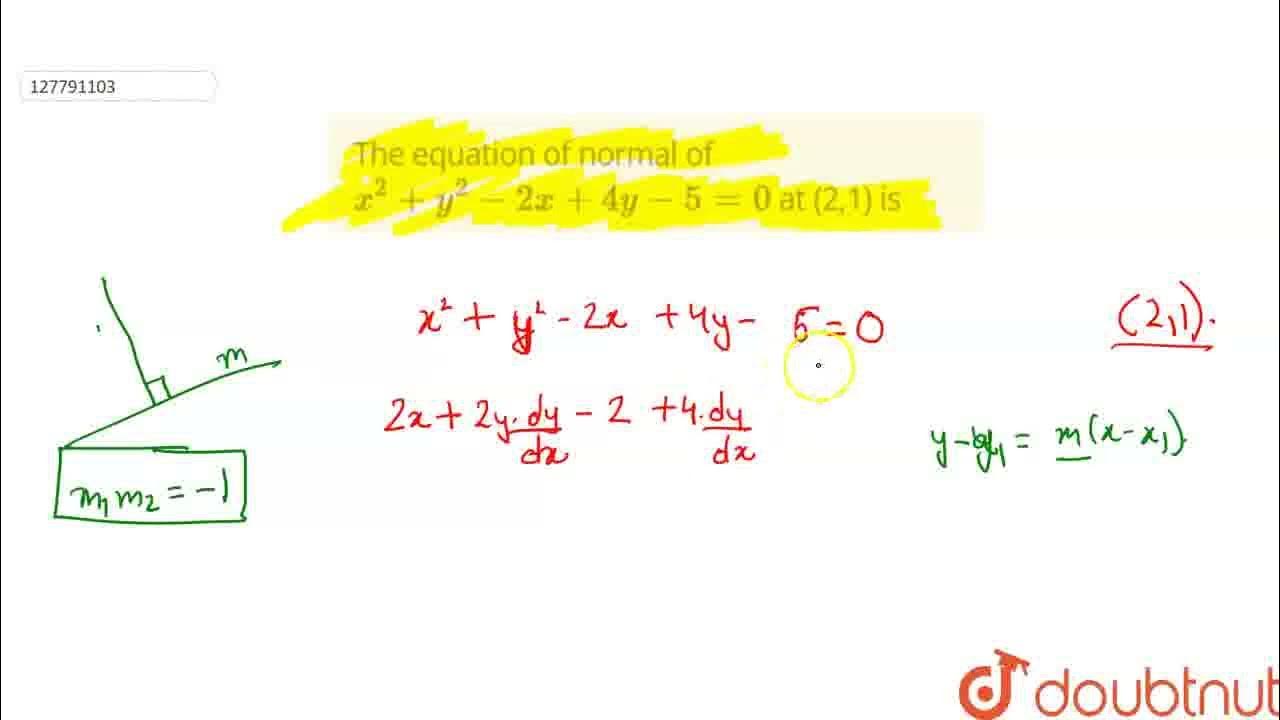 127791103
The equation of normal of
x² + y² − 2x + 4y − 5 = 0 at (2,1) is
x² + y² - 2x + 4y - 5 = 0
(2,1).
m
2x + 2y. dy/dx - 2 + 4. dy/dx
y - y₁ = m(x - x₁)
m₁ m₂ = -1
doubtnut